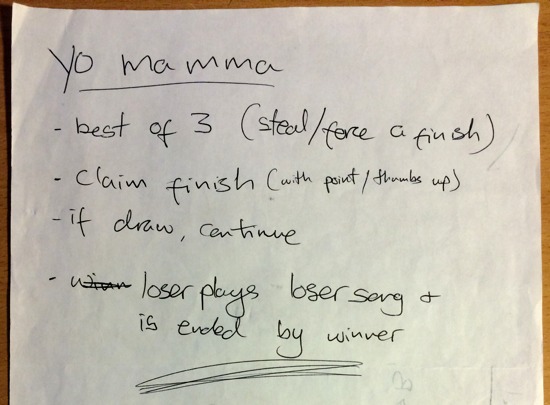 Yo mamma
- best of 3 (steal/force a finish)
- Claim finish (with point/thumbs up)
- if draw, continue
- loser plays loser song +
is ended by winner